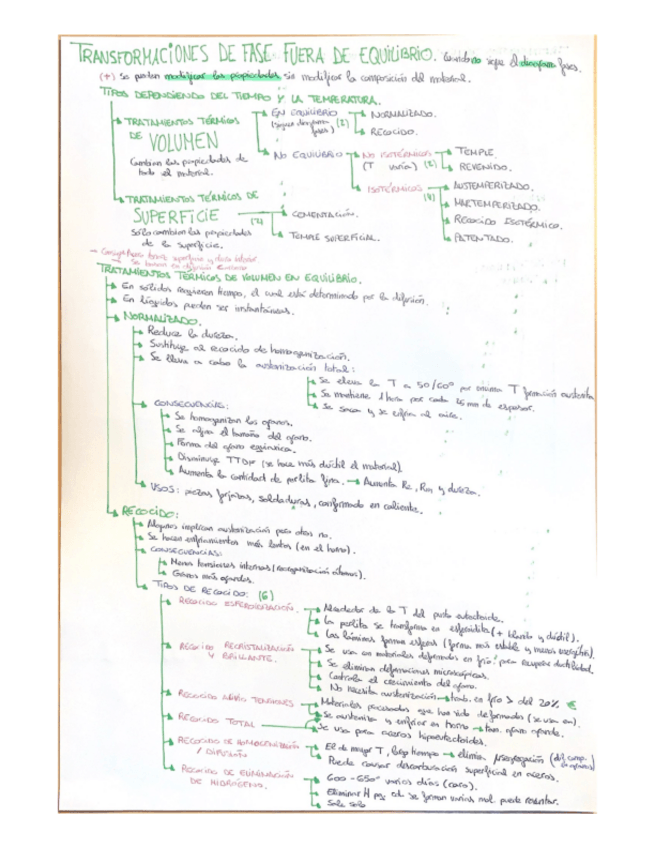 TRANSFORMACIONES DE FASE FUERA DE EQUILIBRIO. Cuando no sigue el diagrama fases.
(+) Se pueden modificar las propiedades sin modificar la composición del material.
TIPOS DEPENDIENDO DEL TIEMPO Y LA TEMPERATURA.
TRATAMIENTOS TÉRMICOS DE VOLUMEN
Cambian las propiedades de todo el material.
EN EQUILIBRIO (sigue diagrama fases) (2)
NORMALIZADO.
RECOCIDO.
NO EQUILIBRIO
NO ISOTÉRMICOS (T varía) (2)
TEMPLE.
REVENIDO.
ISOTÉRMICOS (4)
AUSTEMPERIZADO.
MARTEMPERIZADO.
RECOCIDO ISOTÉRMICO.
PATENTADO.
TRATAMIENTOS TÉRMICOS DE SUPERFICIE (2)
Solo cambian las propiedades de la superficie.
CEMENTACIÓN.
TEMPLE SUPERFICIAL.
TRATAMIENTOS TÉRMICOS DE VOLUMEN EN EQUILIBRIO.
En sólidos requieren tiempo, el cual está determinado por la difusión.
En líquidos pueden ser instantáneas.
NORMALIZADO.
Reduce la dureza.
Sustituye al recocido de homogenización.
Se lleva a cabo la austenización total:
Se eleva la T a 50/60º por encima T formación austenita
Se mantiene 1 hora por cada 25 mm de espesor.
Se saca y se enfría al aire.
CONSECUENCIAS:
Se homogenizan los granos.
Se afina el tamaño del grano.
Forma del grano equiaxica.
Disminuye TTDF (se hace más dúctil el material).
Aumenta la cantidad de perlita fina. → Aumenta Re, Rm y dureza.
USOS: piezas forjadas, soldaduras, conformado en caliente.
RECOCIDO:
Algunos implican austenización pero otros no.
Se hacen enfriamientos más lentos (en el horno).
CONSECUENCIAS:
Menos tensiones internas (reorganización átomos).
Granos más grandes.
TIPOS DE RECOCIDO: (6)
RECOCIDO ESFEROIDIZACIÓN.
Alrededor de la T del punto eutectoide.
La perlita se transforma en esferoidita (+ blando y dúctil).
Las láminas forman esferas (forma más estable y menos energética).
RECOCIDO RECRISTALIZACIÓN Y BRILLANTE.
Se usa en materiales deformados en frío para recuperar ductilidad.
Se eliminan deformaciones microscópicas.
Controla el crecimiento del grano.
No necesita austenización → trab. en frío > del 20%
RECOCIDO ALIVIO TENSIONES
Materiales procesados que han sido deformados (se usa en).
RECOCIDO TOTAL
Se austeniza y enfría en horno → tam. grano grande.
Se usa para aceros hipoeutectoides.
RECOCIDO DE HOMOGENIZACIÓN / DIFUSIÓN
El de mayor T, largo tiempo → elimina segregación
Puede causar descarburación superficial en aceros.
RECOCIDO DE ELIMINACIÓN DE HIDRÓGENO.
600-650º varios días (caro).
Eliminar H se forman varias mol. puede reventar.
Solo